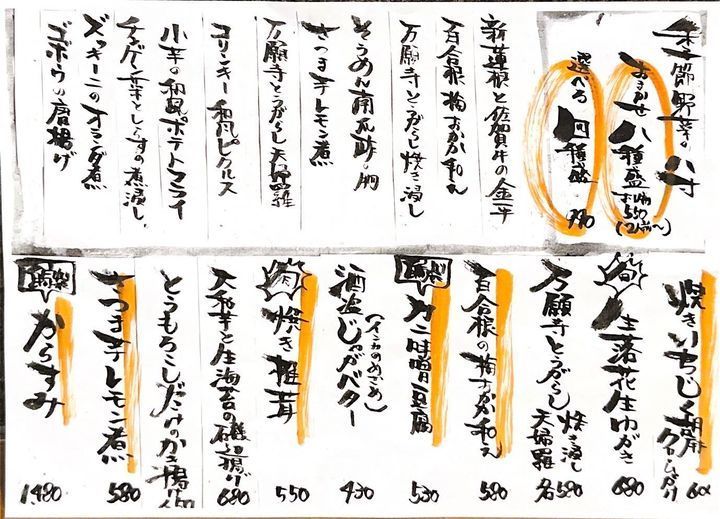 季節野菜の八寸
おまかせ八種盛
お1人前550
(2人前〜)
選べる四種盛
990
新蓮根と佐賀牛の金平
百合根梅おかか和え
万願寺とうがらし焼き浸し
そうめん南瓜酢の物
さつま芋レモン煮
万願寺とうがらし天婦羅
コリンキー和風ピクルス
小芋の和風ポテトフライ
チンゲン菜としらすの煮浸し
ズッキーニのオランダ煮
ゴボウの唐揚げ
焼きいちじく
600
旬
生落花生ゆがき
680
万願寺とうがらし
焼き浸し
天婦羅
各580
百合根の梅おかか和え
580
自家製
カニ味噌豆腐
530
酒盗じゃがバター
(インカのめざめ)
430
肉
焼き椎茸
550
大和芋と生海苔の磯辺揚げ
680
とうもろこしだけのかき揚げ
さつま芋レモン煮
580
自家製
からすみ
1,480